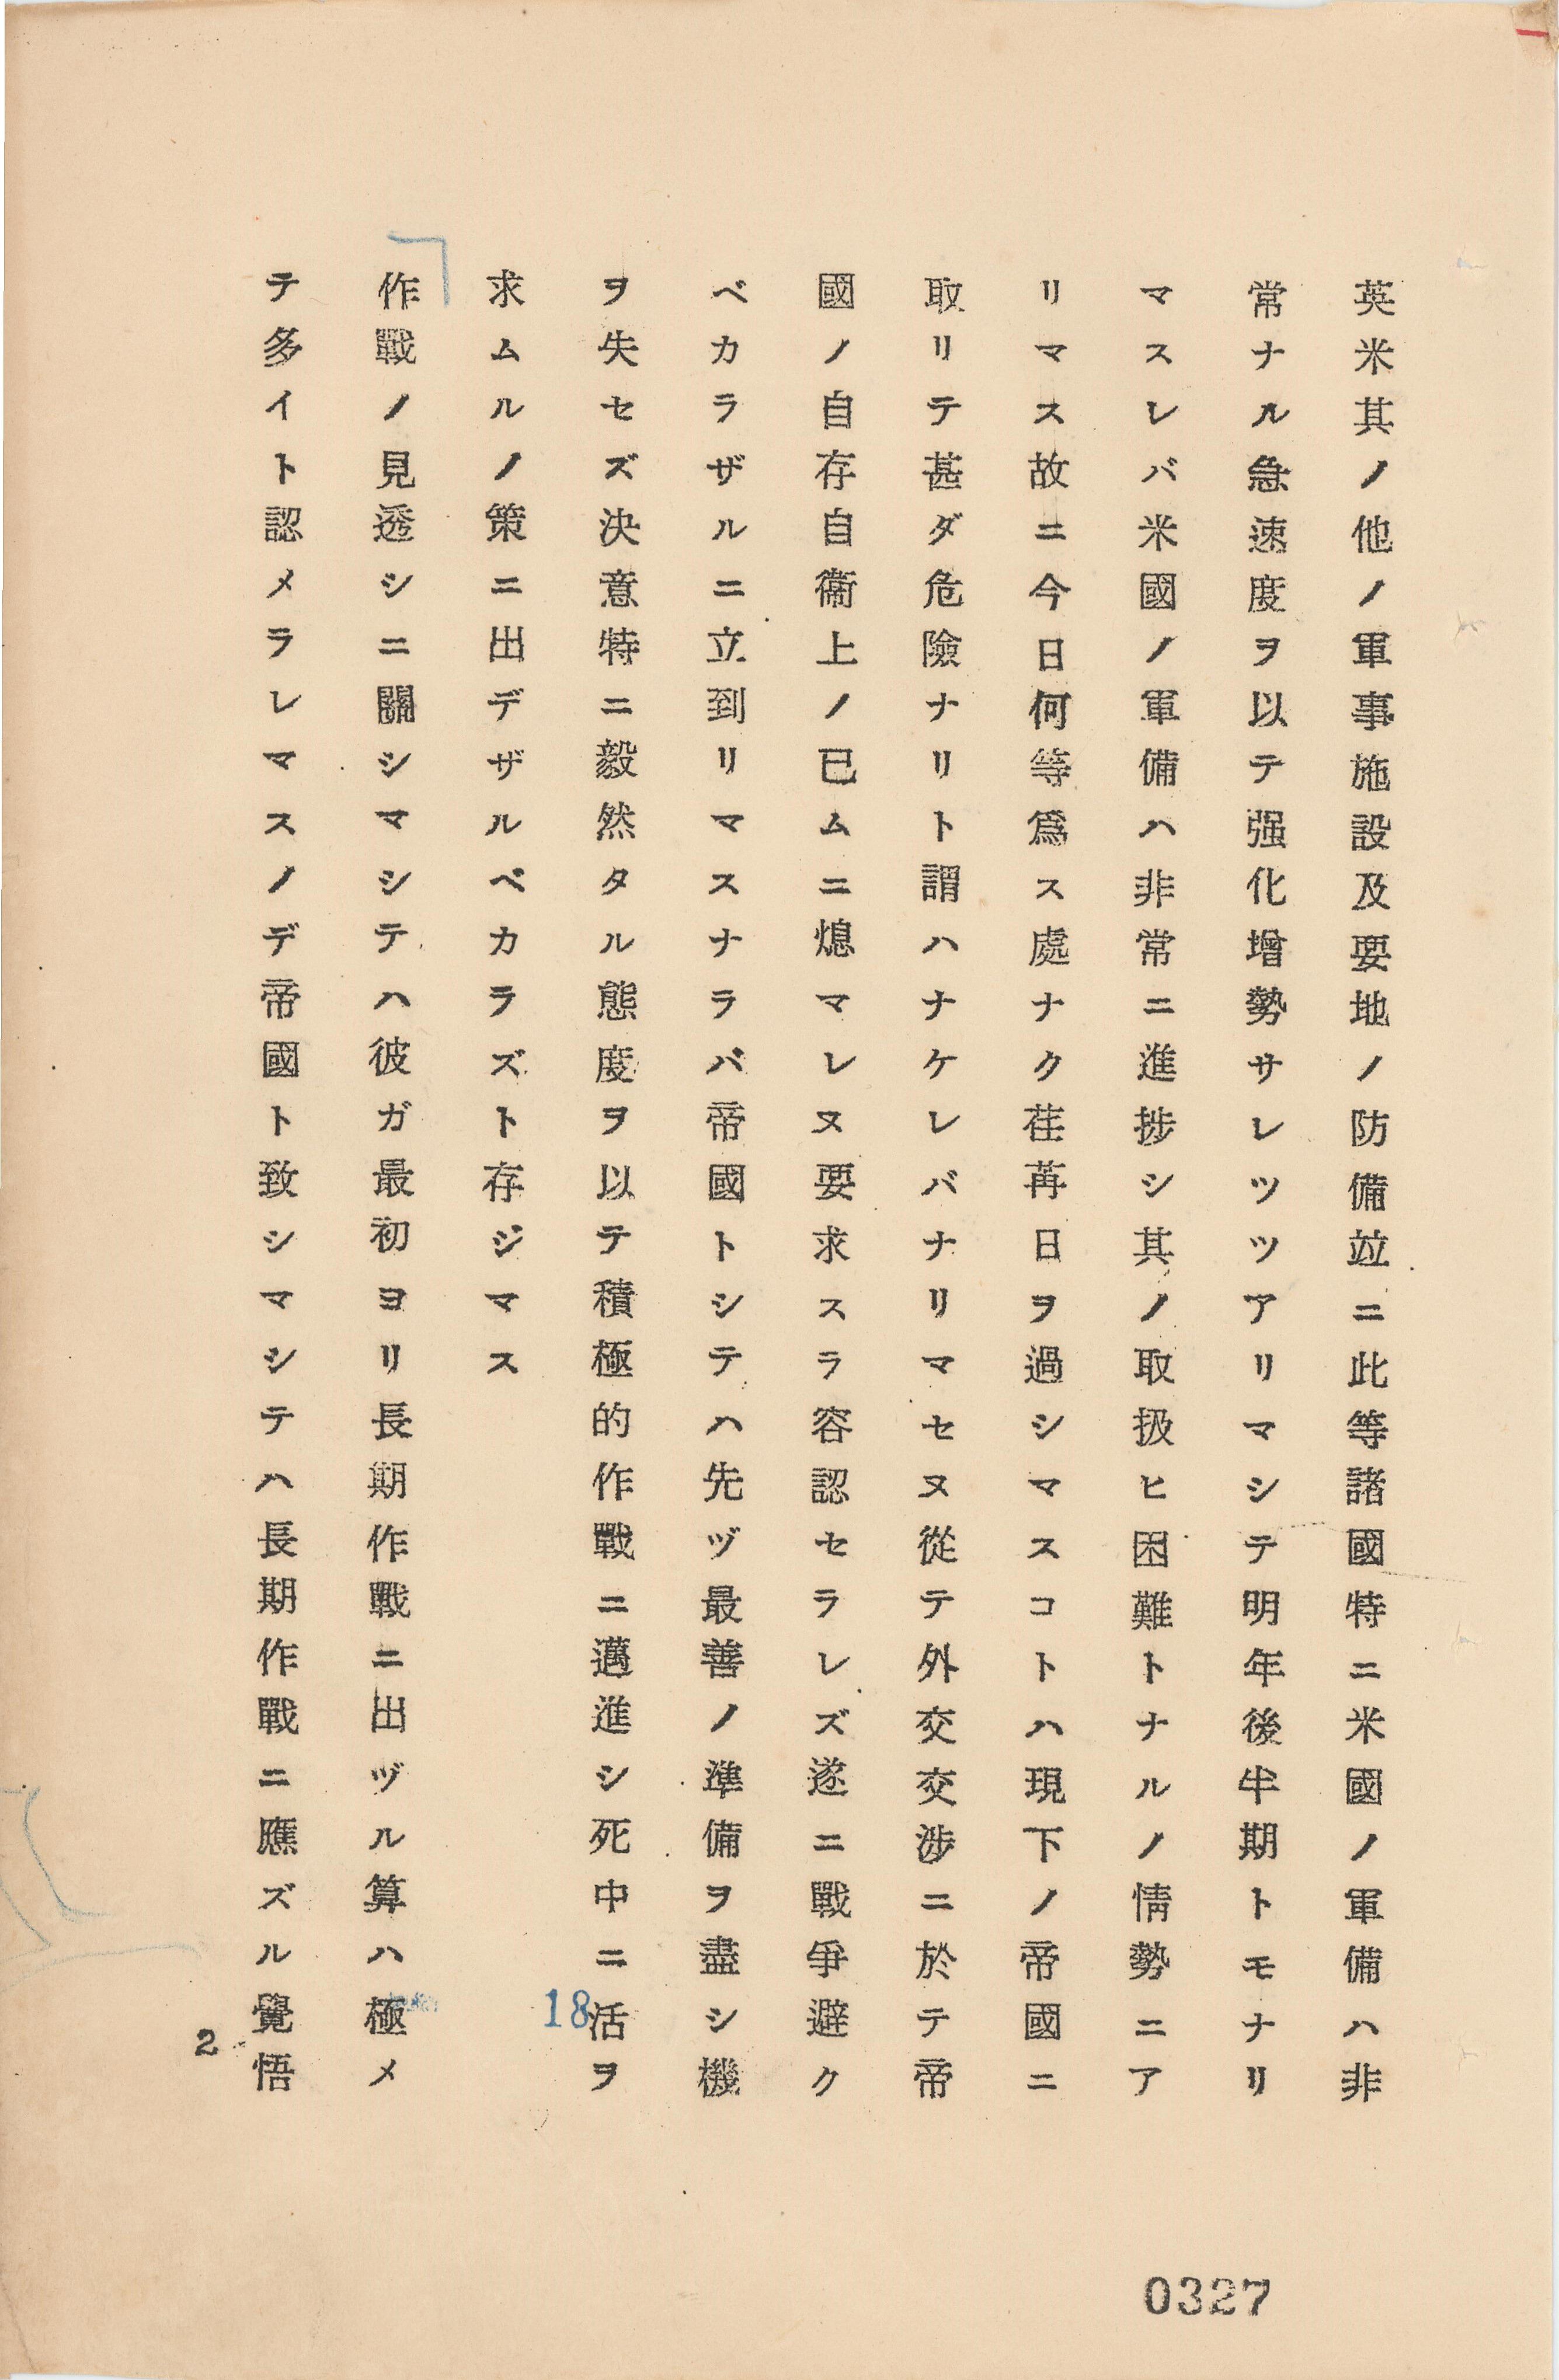 英米其ノ他ノ軍事施設及要地ノ防備竝ニ此等諸國特ニ米國ノ軍備ハ非
常ナル急速度ヲ以テ强化增勢サレツツアリマシテ明年後半期トモナリ
マスレバ米國ノ軍備ハ非常ニ進捗シ其ノ取扱ヒ困難トナルノ情勢ニア
リマス故ニ今日何等爲ス處ナク荏苒日ヲ過シマスコトハ現下ノ帝國ニ
取リテ甚ダ危險ナリト謂ハナケレバナリマセヌ從テ外交交涉ニ於テ帝
國ノ自存自衞上ノ已ムニ熄マレヌ要求スラ容認セラレズ遂ニ戰爭避ク
ベカラザルニ立到リマスナラバ帝國トシテハ先ヅ最善ノ準備ヲ盡シ機
ヲ失セズ決意特ニ毅然タル態度ヲ以テ積極的作戰ニ邁進シ死中ニ活ヲ
求ムルノ策ニ出デザルベカラズト存ジマス
作戰ノ見透シニ關シマシテハ彼ガ最初ヨリ長期作戰ニ出ヅル算ハ極メ
テ多イト認メラレマスノデ帝國ト致シマシテハ長期作戰ニ應ズル覺悟
18
2
0327